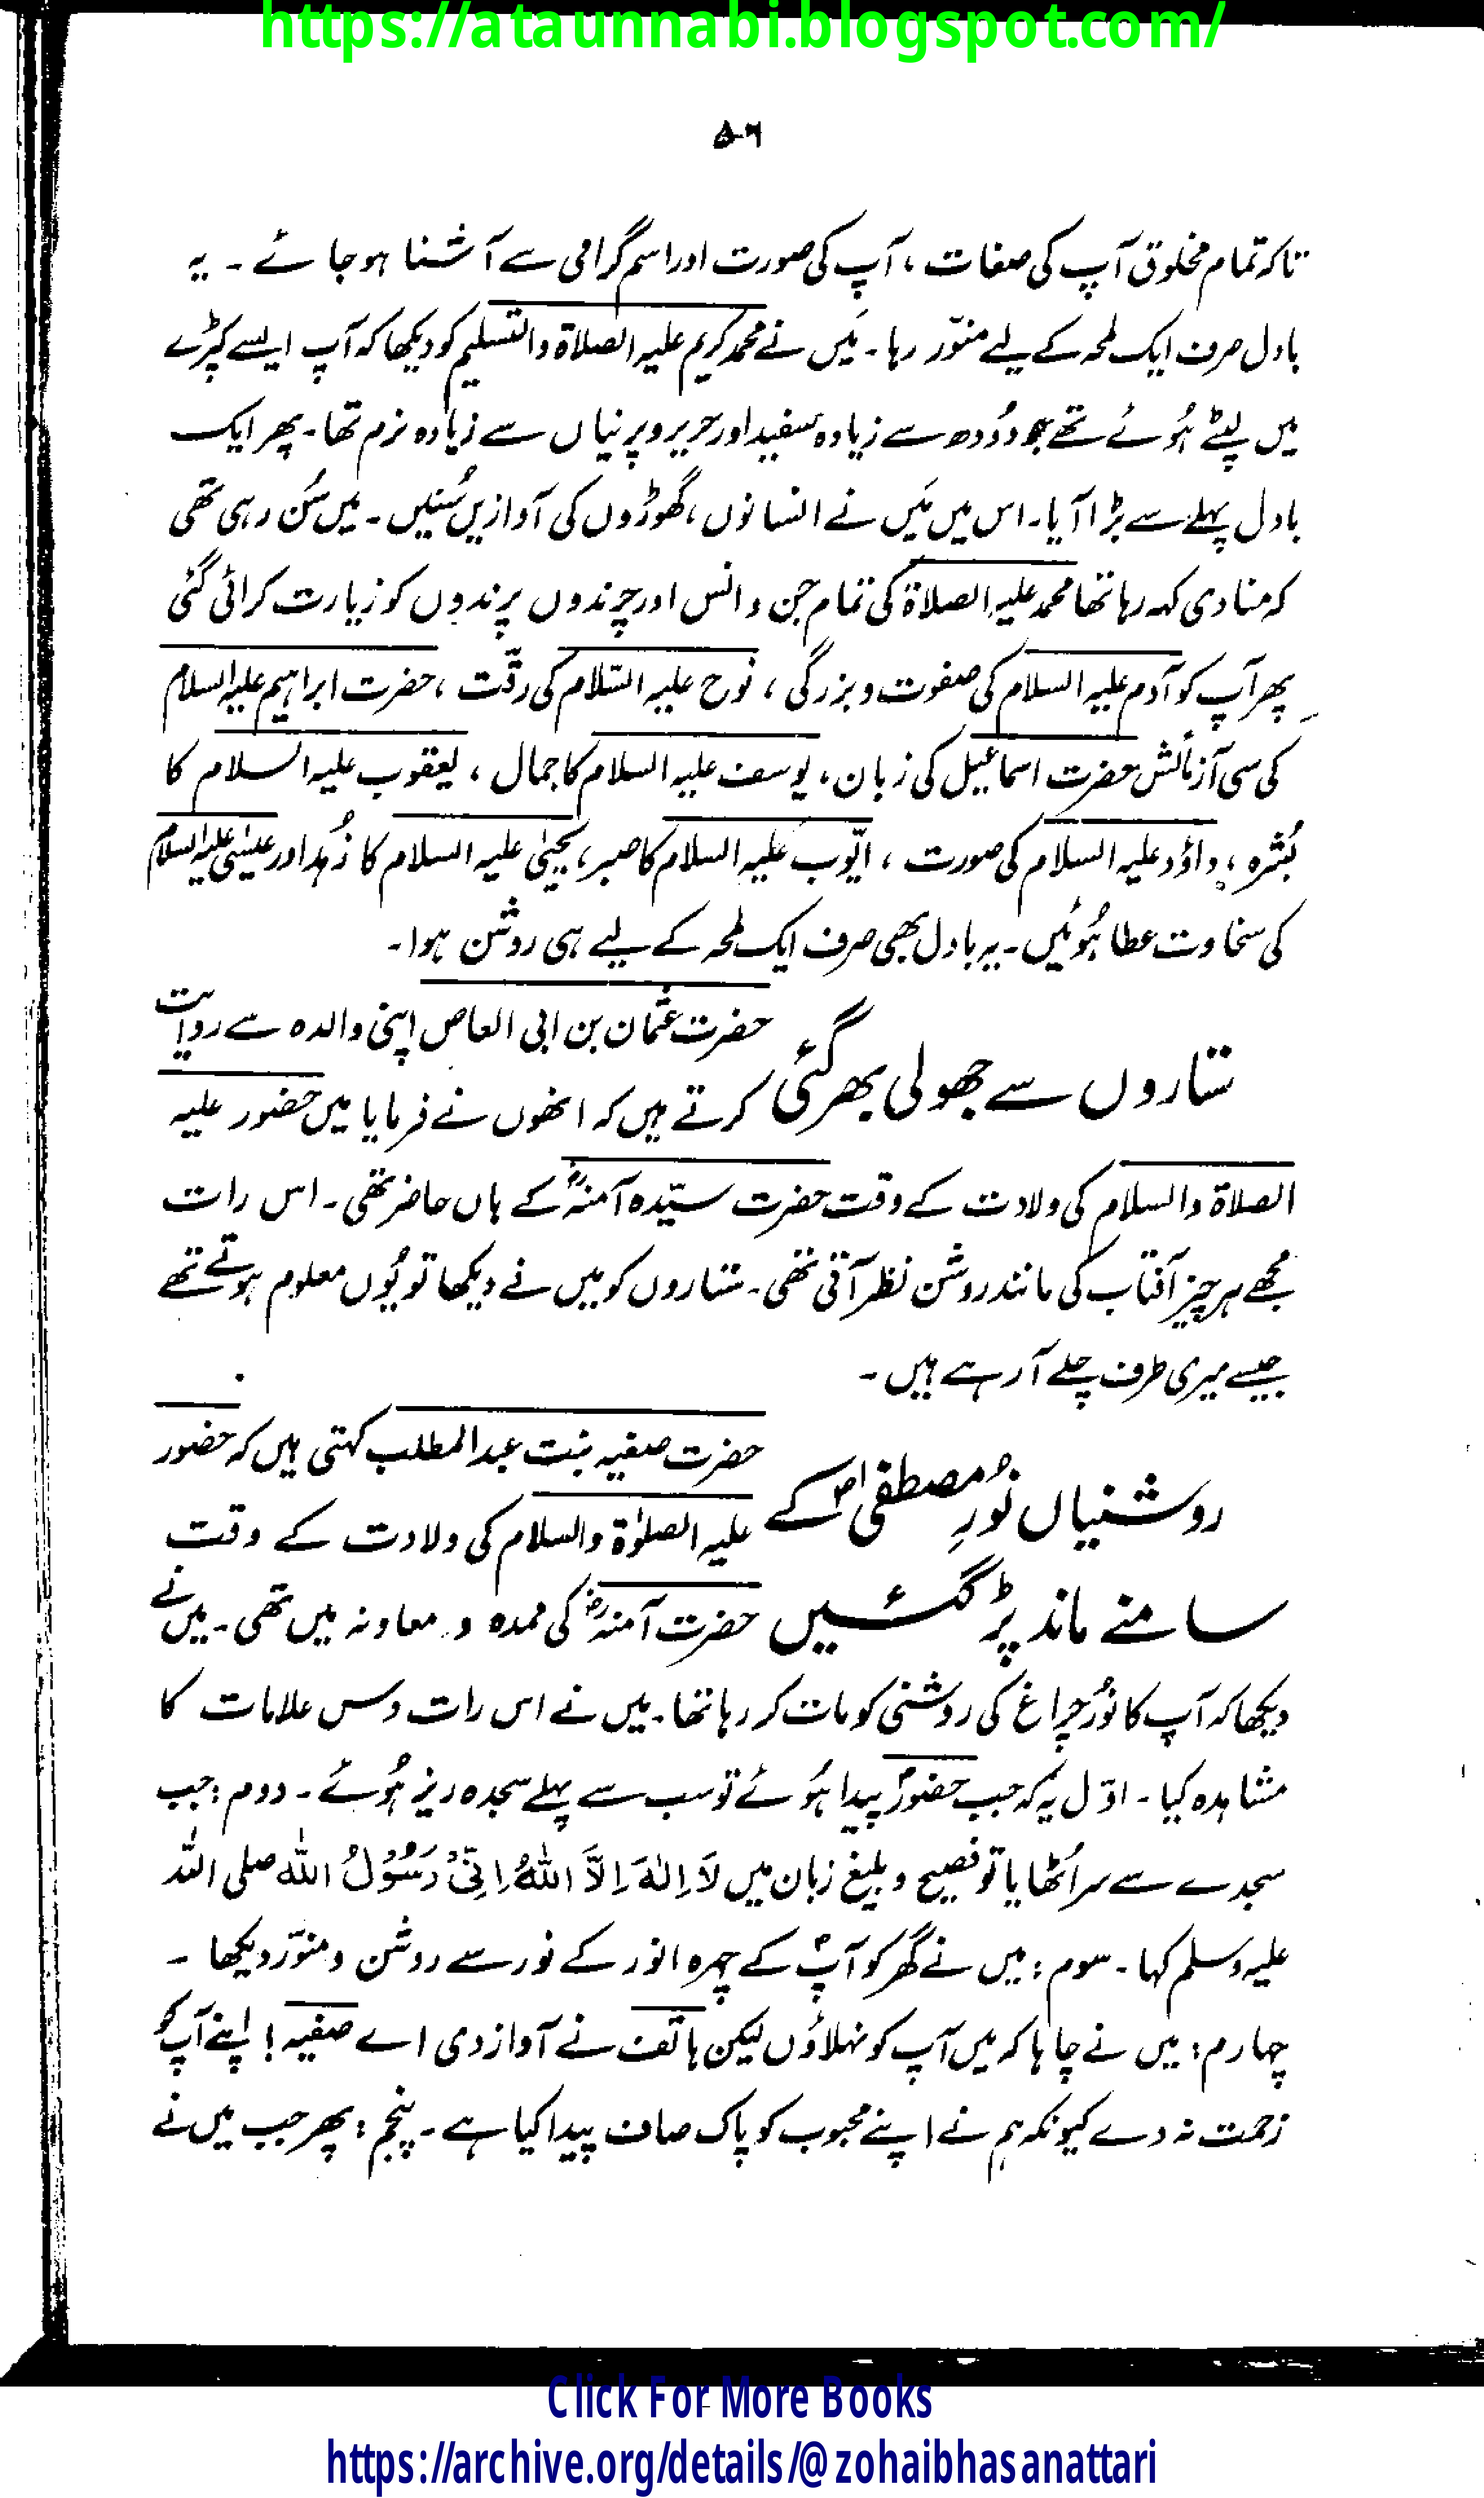 https://ataunnabi.blogspot.com/
۵۰۶
تاکہ تمام مخلوق آپ کی صفات ، آپ کی صورت اور اسم گرامی سے آشنا ہو جائے ۔ یہ
بادل صرف ایک لمحہ کے لیے منوّر رہا ۔ مَیں نے محمد کریم علیہ الصلاۃ والتسلیم کو دیکھا کہ آپ ایسے کپڑے
میں لپٹے ہُوئے تھے جو دُودھ سے زیادہ سفید اور حریر و پرنیاں سے زیادہ نرم تھا ۔ پھر ایک
بادل پہلے سے بڑا آیا ۔ اس میں مَیں نے انسانوں ، گھوڑوں کی آوازیں سُنیں ۔ میں سُن رہی تھی
کہ منادی کہہ رہا تھا محمد علیہ الصلاۃ کی تمام جن و انس اور چرندوں پرندوں کو زیارت کرائی گئی
پھر آپ کو آدم علیہ السلام کی صفوت و بزرگی ، نوح علیہ السّلام کی رقّت ، حضرت ابراہیم علیہ السلام
کی سی آزمائش حضرت اسماعیل کی زبان ، یوسف علیہ السلام کا جمال ، یعقوب علیہ السلام کا
بُشرہ ، داؤد علیہ السلام کی صورت ، ایّوب علیہ السلام کا صبر ، یحییٰ علیہ السلام کا زُہد اور عیسٰی علیہ السلام
کی سخاوت عطا ہُوئیں ۔ یہ بادل بھی صرف ایک لمحہ کے لیے ہی روشن ہوا ۔
ستاروں سے جھولی بھر گئی
حضرت عثمان بن ابی العاص اپنی والدہ سے روایت
کرتے ہیں کہ انھوں نے فرمایا میں حضور علیہ
الصلاۃ والسلام کی ولادت کے وقت حضرت سیّدہ آمنہؓ کے ہاں حاضر تھی ۔ اس رات
مجھے ہر چیز آفتاب کی مانند روشن نظر آتی تھی ۔ ستاروں کو میں نے دیکھا تو یُوں معلوم ہوتے تھے
جیسے میری طرف چلے آ رہے ہیں ۔
روشنیاں نُورِ مُصطفٰی ﷺ کے
سامنے ماند پڑ گئیں
حضرت صفیہ بنت عبدالمطلب کہتی ہیں کہ حضور
علیہ الصلوٰۃ والسلام کی ولادت کے وقت
حضرت آمنہؓ کی ممدہ و معاونہ میں تھی ۔ میں نے
دیکھا کہ آپ کا نُور چراغ کی روشنی کو مات کر رہا تھا ۔ میں نے اس رات دس علامات کا
مشاہدہ کیا ۔ اوّل یہ کہ جب حضورؐ پیدا ہُوئے تو سب سے پہلے سجدہ ریز ہُوئے ۔ دوم : جب
سجدے سے سر اُٹھایا تو فصیح و بلیغ زبان میں لَا اِلٰہَ اِلَّا اللّٰہُ اِنِّیْ رَسُوْلُ اللّٰہ صلی اللہ
علیہ وسلم کہا ۔ سوم : میں نے گھر کو آپؐ کے چہرہ انور کے نور سے روشن و منوّر دیکھا ۔
چہارم : میں نے چاہا کہ میں آپ کو نہلاؤں لیکن ہاتف نے آواز دی اے صفیہ ! اپنے آپ کو
زحمت نہ دے کیونکہ ہم نے اپنے محبوب کو پاک صاف پیدا کیا ہے ۔ پنجم : پھر جب میں نے
Click For More Books
https://archive.org/details/@zohaibhasanattari